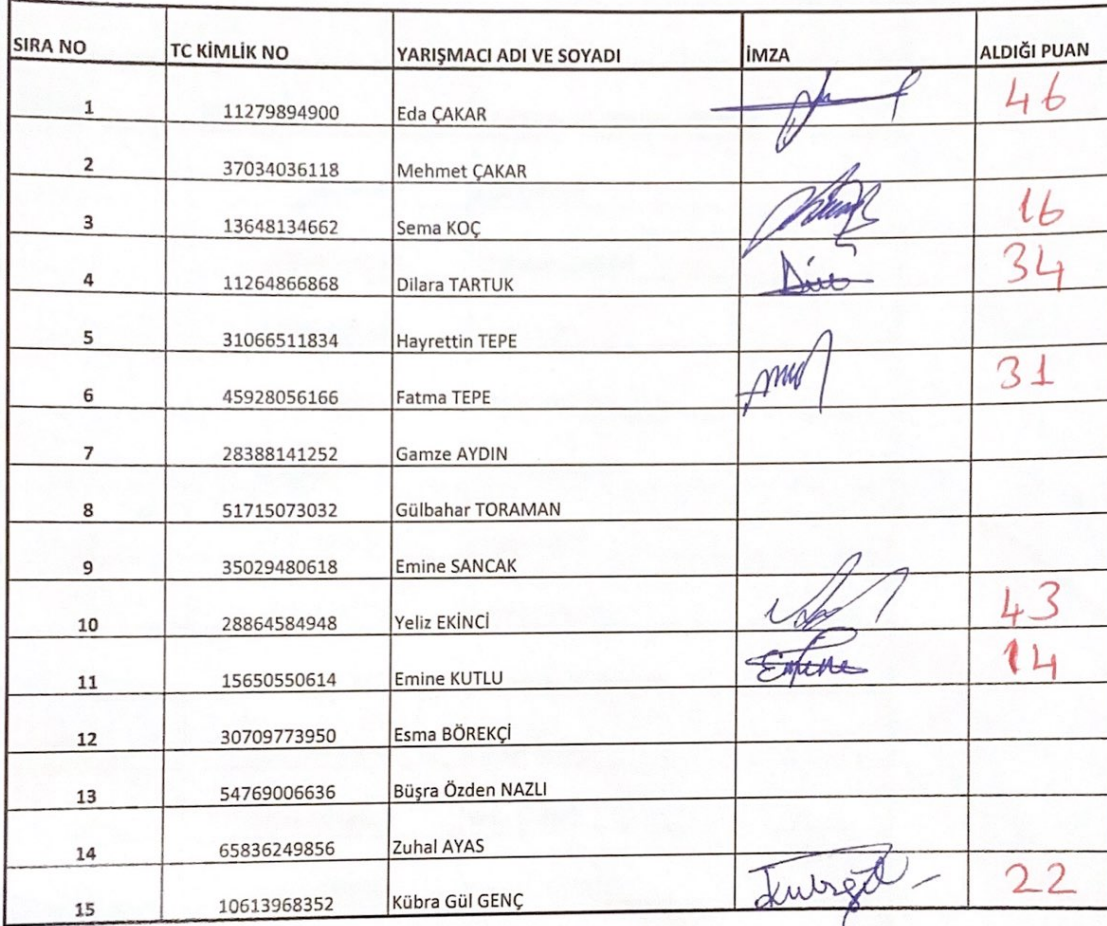 SIRA NO TC KİMLİK NO YARIŞMACI ADI VE SOYADI İMZA ALDIĞI PUAN
1 11279894900 Eda ÇAKAR 46
2 37034036118 Mehmet ÇAKAR
3 13648134662 Sema KOÇ 16
4 11264866868 Dilara TARTUK 34
5 31066511834 Hayrettin TEPE
6 45928056166 Fatma TEPE 31
7 28388141252 Gamze AYDIN
8 51715073032 Gülbahar TORAMAN
9 35029480618 Emine SANCAK
10 28864584948 Yeliz EKİNCİ 43
11 15650550614 Emine KUTLU Emine 14
12 30709773950 Esma BÖREKÇİ
13 54769006636 Büşra Özden NAZLI
14 65836249856 Zuhal AYAS
15 10613968352 Kübra Gül GENÇ 22